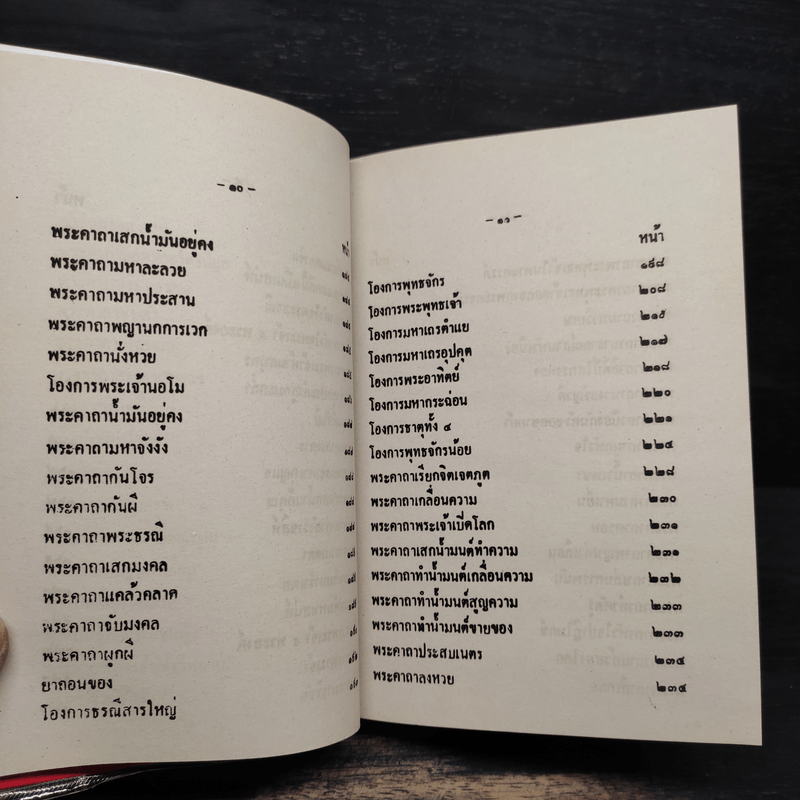 – ๑๐ –
หน้า
พระคาถาเสกน้ำมันอยู่คง
พระคาถามหาละลวย
พระคาถามหาประสาน
พระคาถาพญานกการเวก
พระคาถานั่งหวย
โองการพระเจ้านอโม
พระคาถาน้ำมันอยู่คง
พระคาถามหาจังงัง
พระคาถากันโจร
พระคาถากันผี
พระคาถาพระธรณี
พระคาถาเสกมงคล
พระคาถาแคล้วคลาด
พระคาถาจับมงคล
พระคาถาผูกผี
ยาถอนของ
โองการธรณีสารใหญ่
– ๑๑ –
หน้า
โองการพุทธจักร ๑๙๘
โองการพระพุทธเจ้า ๒๐๘
โองการมหาเถรตำแย ๒๑๕
โองการมหาเถรอุปคุต ๒๑๗
โองการพระอาทิตย์ ๒๑๘
โองการมหากระฉ่อน ๒๒๐
โองการธาตุทั้ง ๔ ๒๒๑
โองการพุทธจักรน้อย ๒๒๔
พระคาถาเรียกจิตเจตภูต ๒๒๘
พระคาถาเกลื่อนความ ๒๓๐
พระคาถาพระเจ้าเปิดโลก ๒๓๑
พระคาถาเสกน้ำมนต์ทำความ ๒๓๑
พระคาถาทำน้ำมนต์เกลื่อนความ ๒๓๒
พระคาถาทำน้ำมนต์สูญความ ๒๓๓
พระคาถาทำน้ำมนต์ขายของ ๒๓๓
พระคาถาประสบเนตร ๒๓๔
พระคาถาลงหวย ๒๓๔